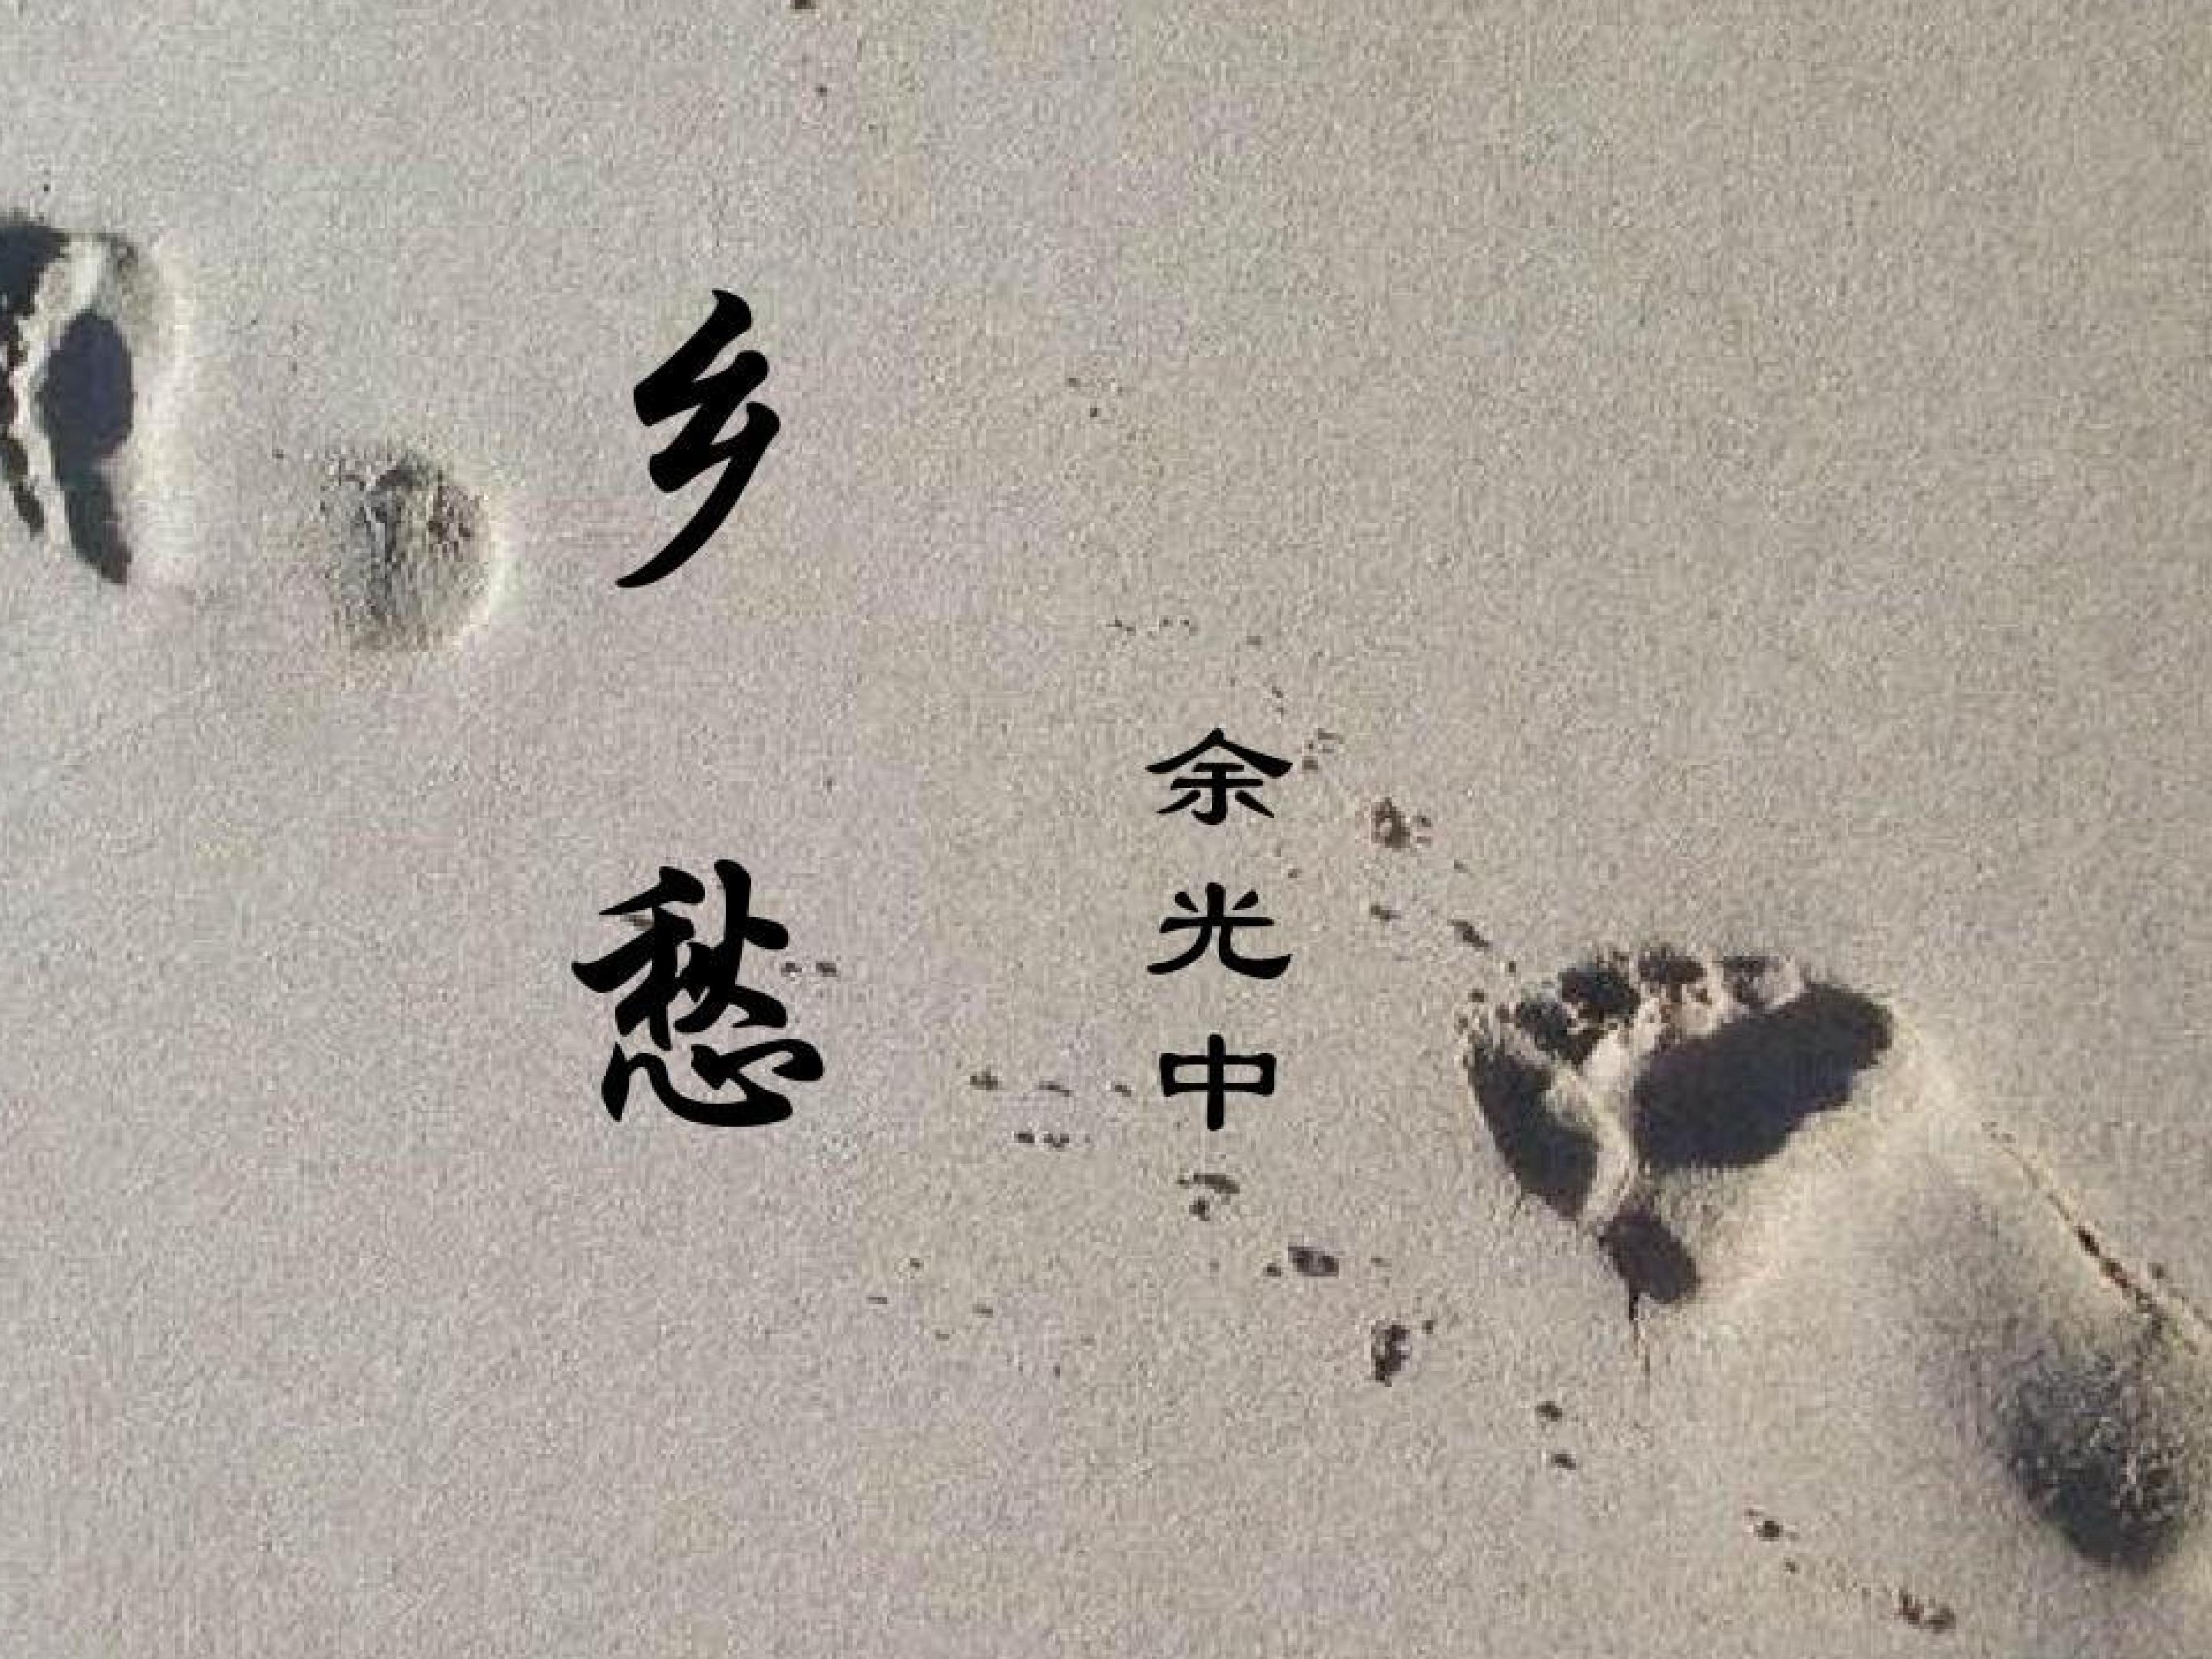 乡愁
余光中